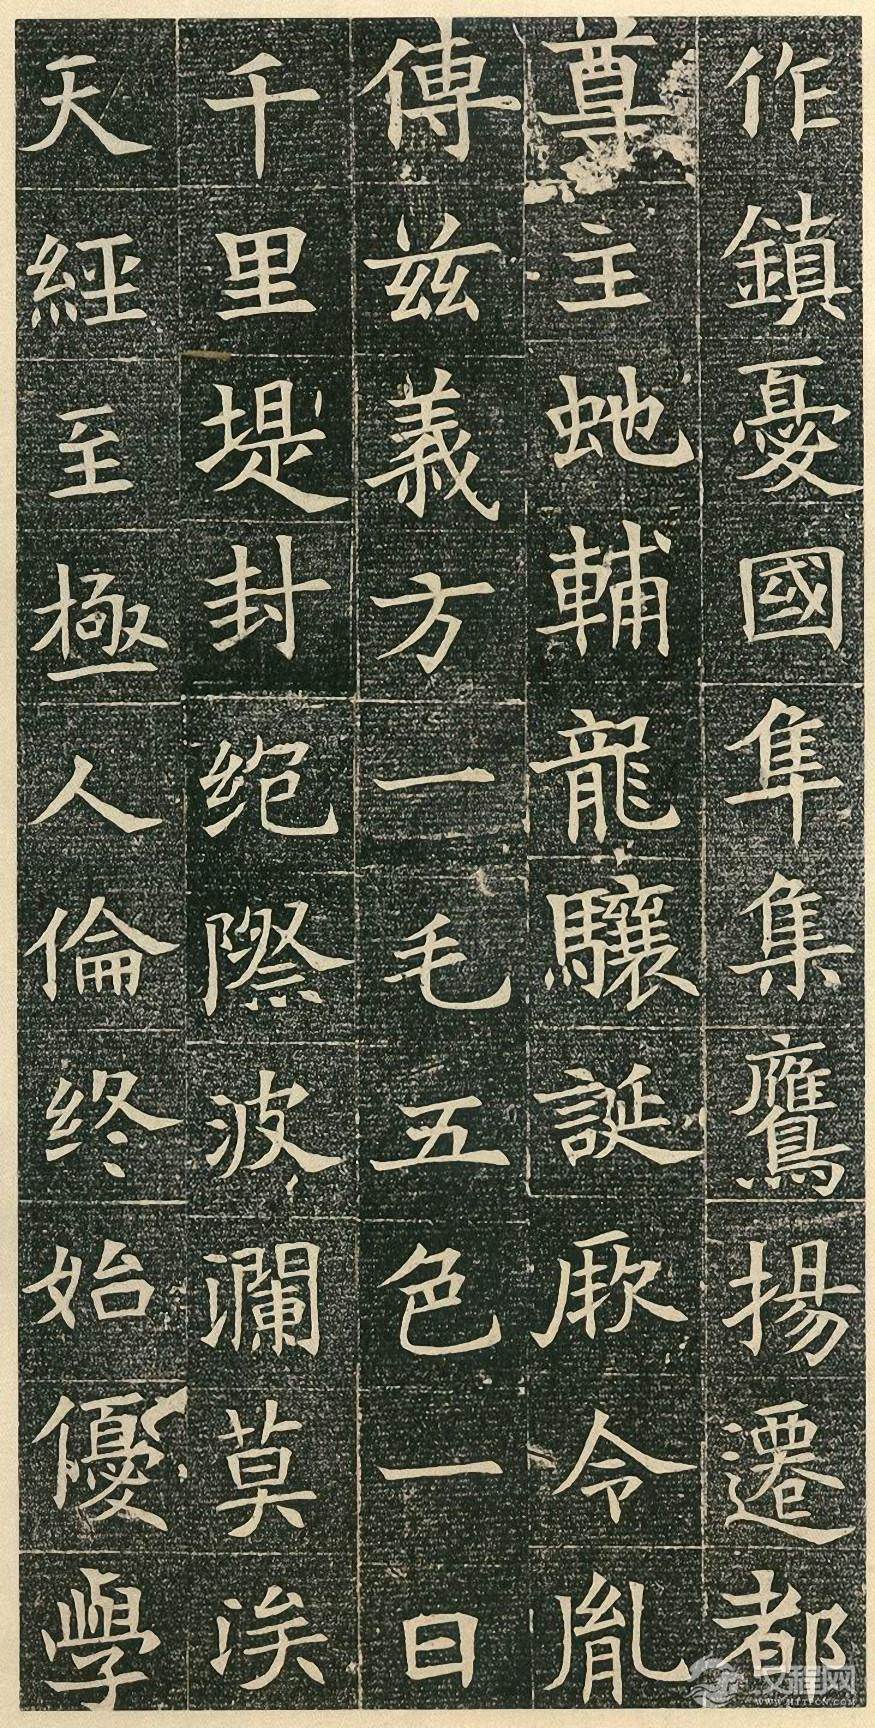 作鎮憂國隼集鷹揚遷都
尊主虵輔龍驤誕厥令胤
傅兹義方一毛五色一日
千里堤封绝際波瀾莫涘
天經至極人倫终始優學
汉程网
WWW.HTTPCN.COM